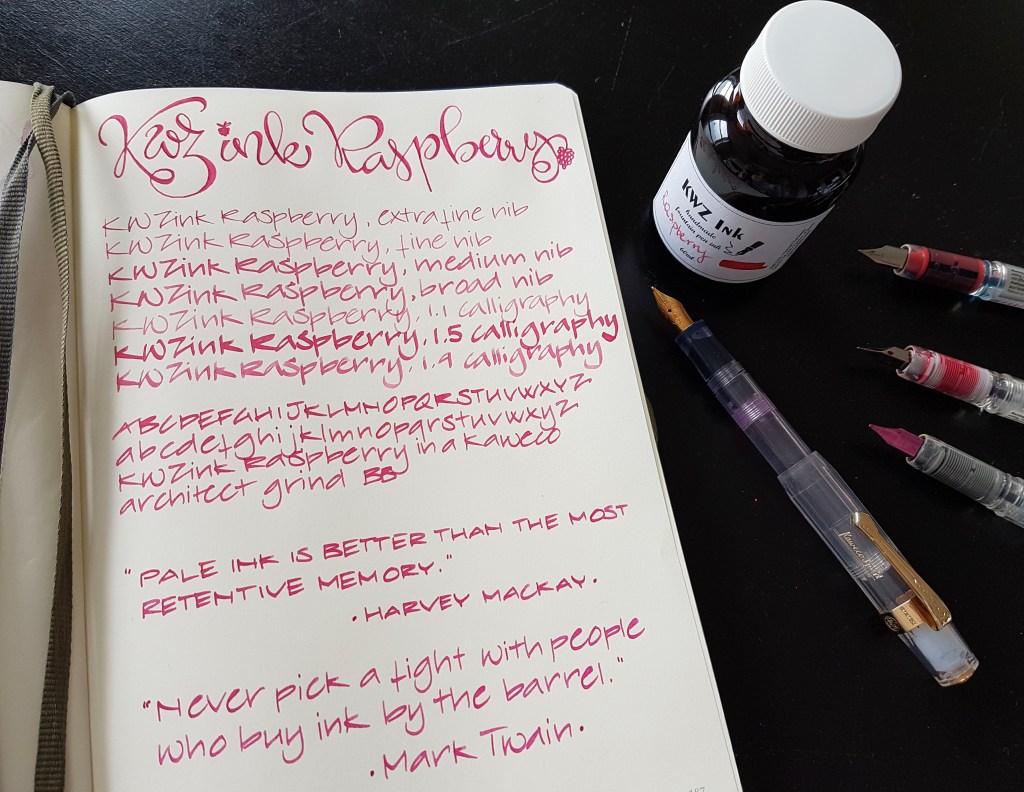 KWZ ink Raspberry
KWZink Raspberry, extra fine nib
KWZink Raspberry, fine nib
KWZink Raspberry, medium nib
KWZink Raspberry, broad nib
KWZink Raspberry, 1.1 calligraphy
KWZink Raspberry, 1.5 calligraphy
KWZink Raspberry, 1.9 calligraphy
ABCDEFGHIJKLMNOPQRSTUVWXYZ
abcdefghijklmnopqrstuvwxyz
KWZink Raspberry in a Kaweco
architect grind BB
"PALE INK IS BETTER THAN THE MOST
RETENTIVE MEMORY."
. HARVEY MACKAY.
"Never pick a fight with people
who buy ink by the barrel."
. Mark Twain.
KWZ Ink
handmade
fountain pen ink
Raspberry
60ml
Kaweco Sport